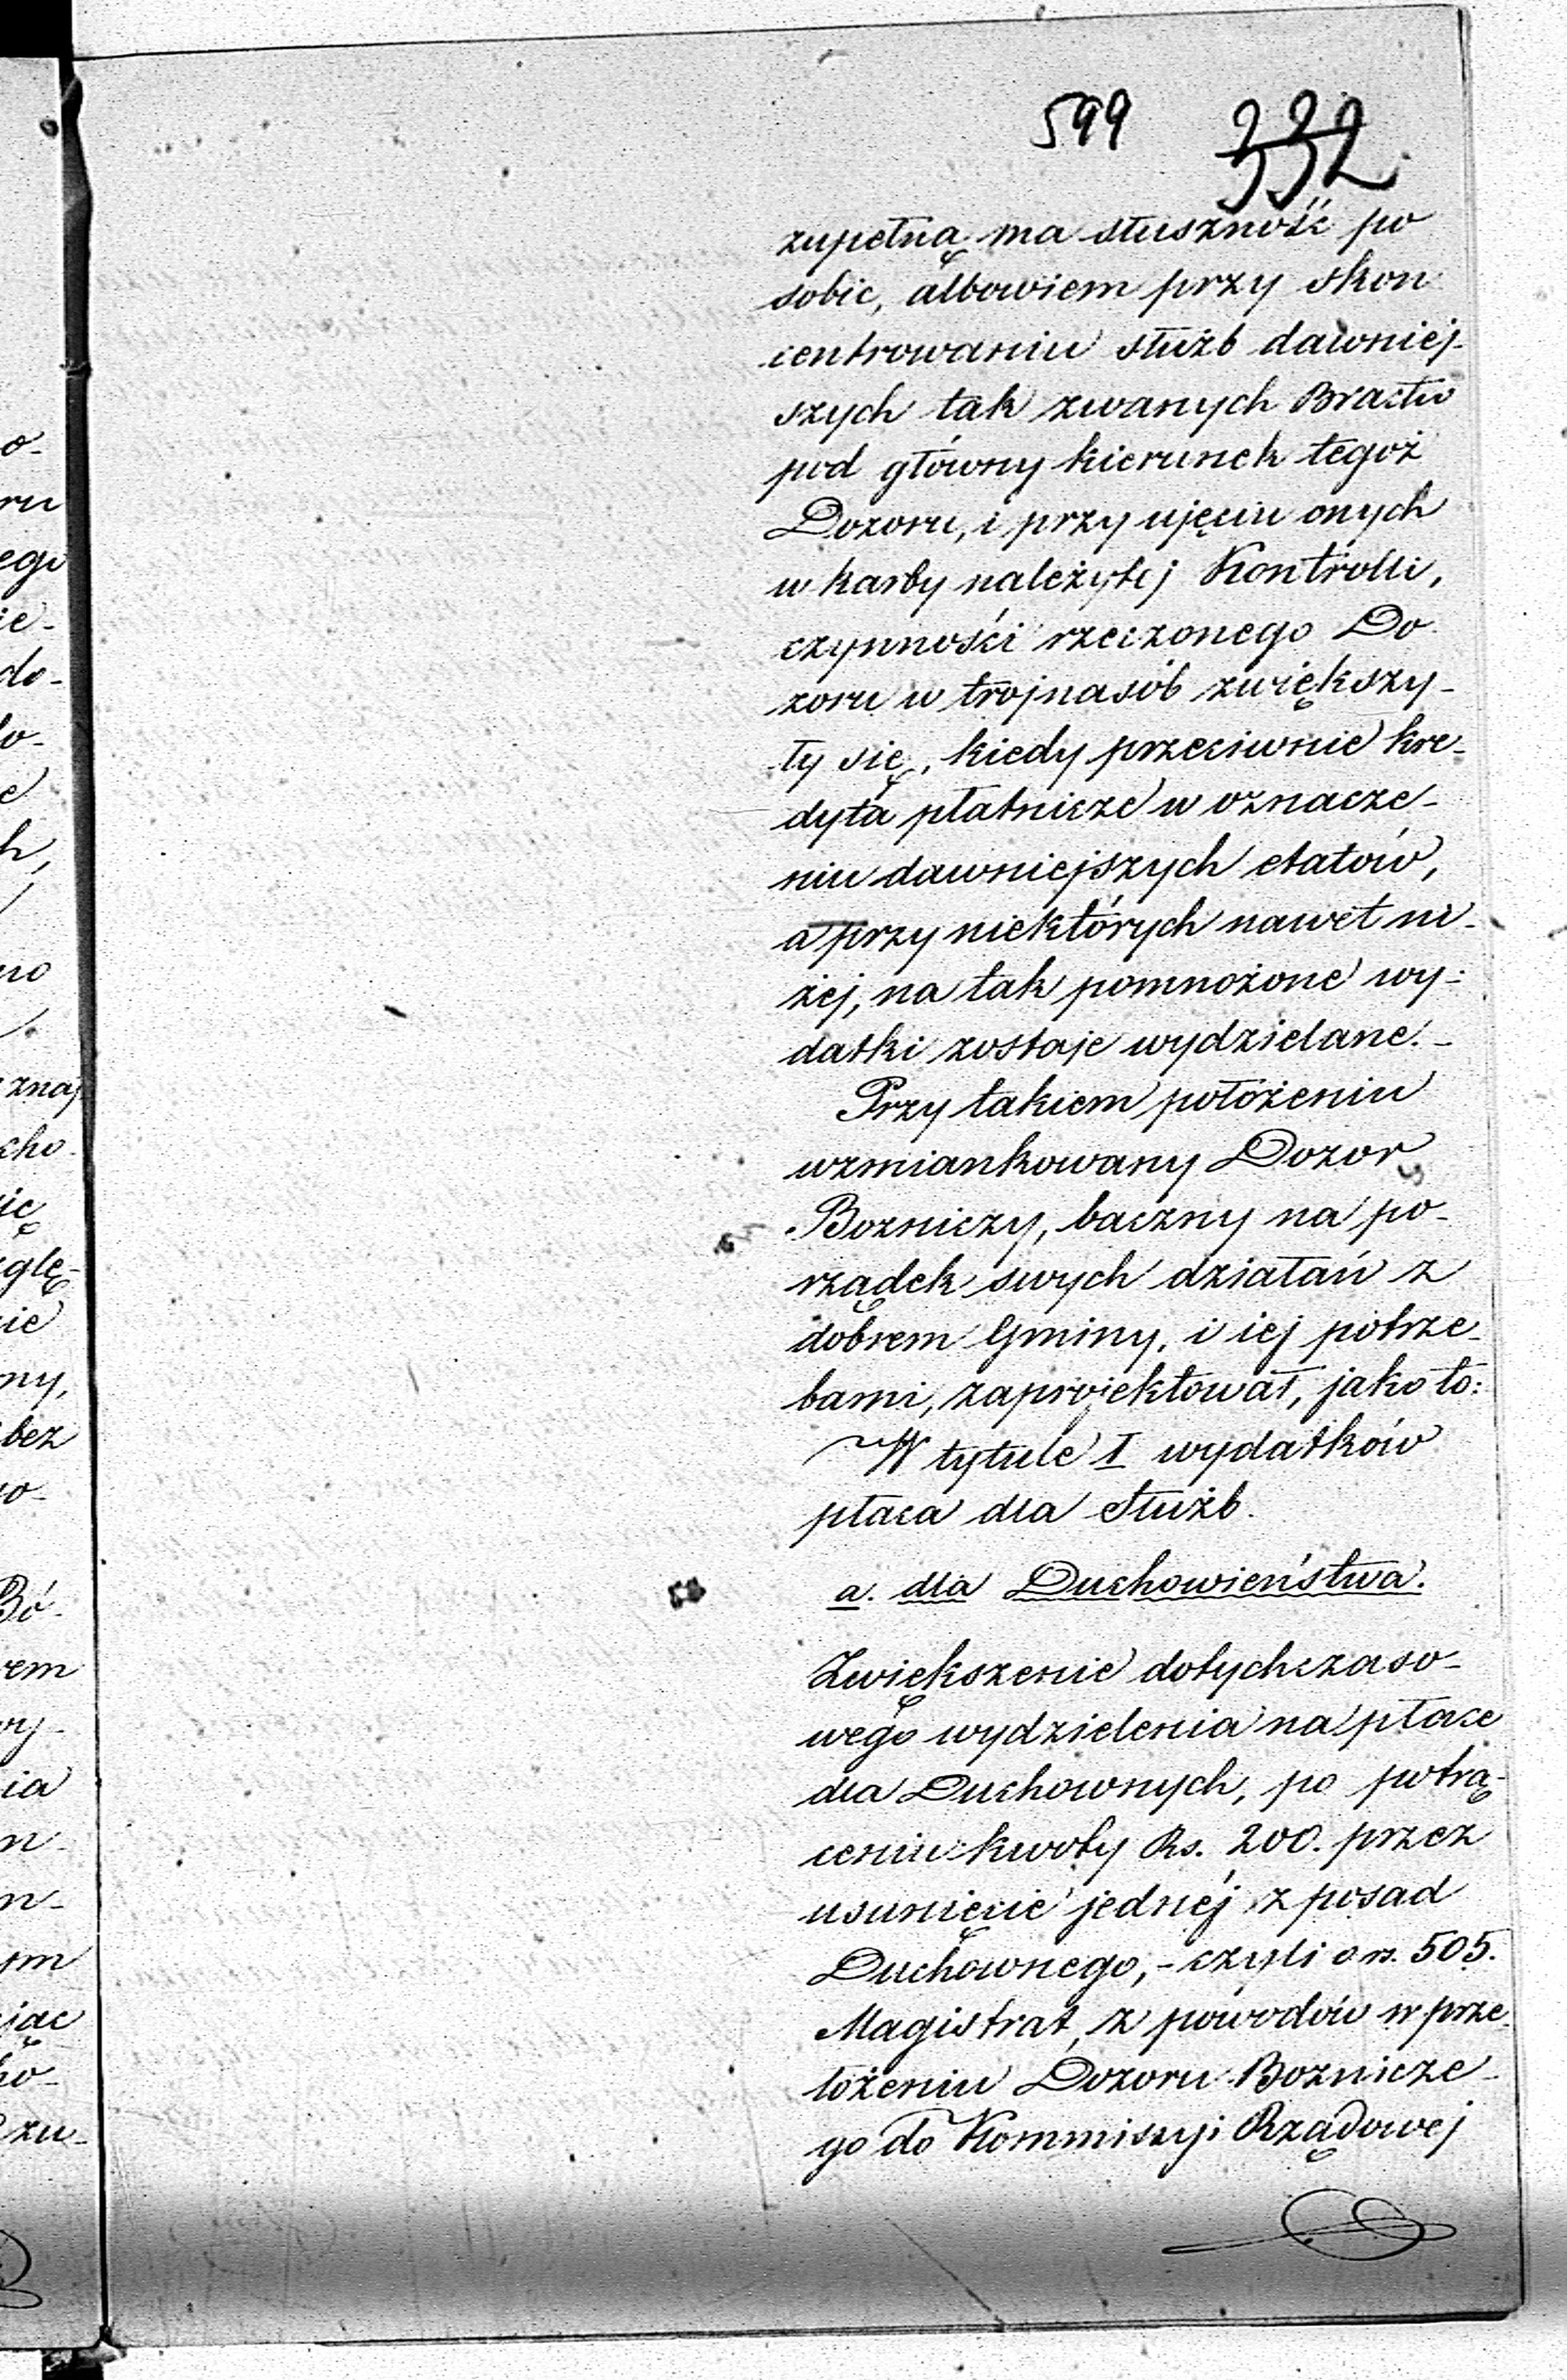 599 332
zupełną ma słuszność po
sobie, albowiem przy skon
centrowaniu służb dawniej-
szych tak zwanych Bractw
pod główny kierunek tegoż
Dozoru, i przy ujęciu onych
w karby należytej Kontrolli,
czynności rzeczonego Do
zoru w trójnasób zwiększy-
ły się, kiedy przeciwnie kre-
dyta płatnicze w oznacze-
niu dawniejszych etatów,
a przy niektórych nawet ni-
żej, na tak pomnożone wy-
datki zostaje wydzielane.-
Przy takiem położeniu
wzmiankowany Dozor
Bozniczy, baczny na po-
rządek swych działań z
dobrem Gminy, i iej potrze-
bami, zaproiektował, jako to:
W tytule I wydatków
płaca dla Służb.
a. dla Duchowieństwa.
Zwiększenie dotychczaso-
wego wydzielenia na płace
dla Duchownych, po potrą-
ceniu kwoty Rs. 200. przez
usunięcie jednéj z posad
Duchownego,- czyli o rs. 505.
Magistrat, z powodów w prze-
łożeniu Dozoru Boznicze-
go do Kommisyi Rządowej
o-
ru
ego
ie-
do-
o-
e
h,
no
znaj
cho-
ię
glę-
ie
ny,
bez
o-
Bó-
rem
wy-
ia
n-
n-
ym
jąc
ho-
zu-